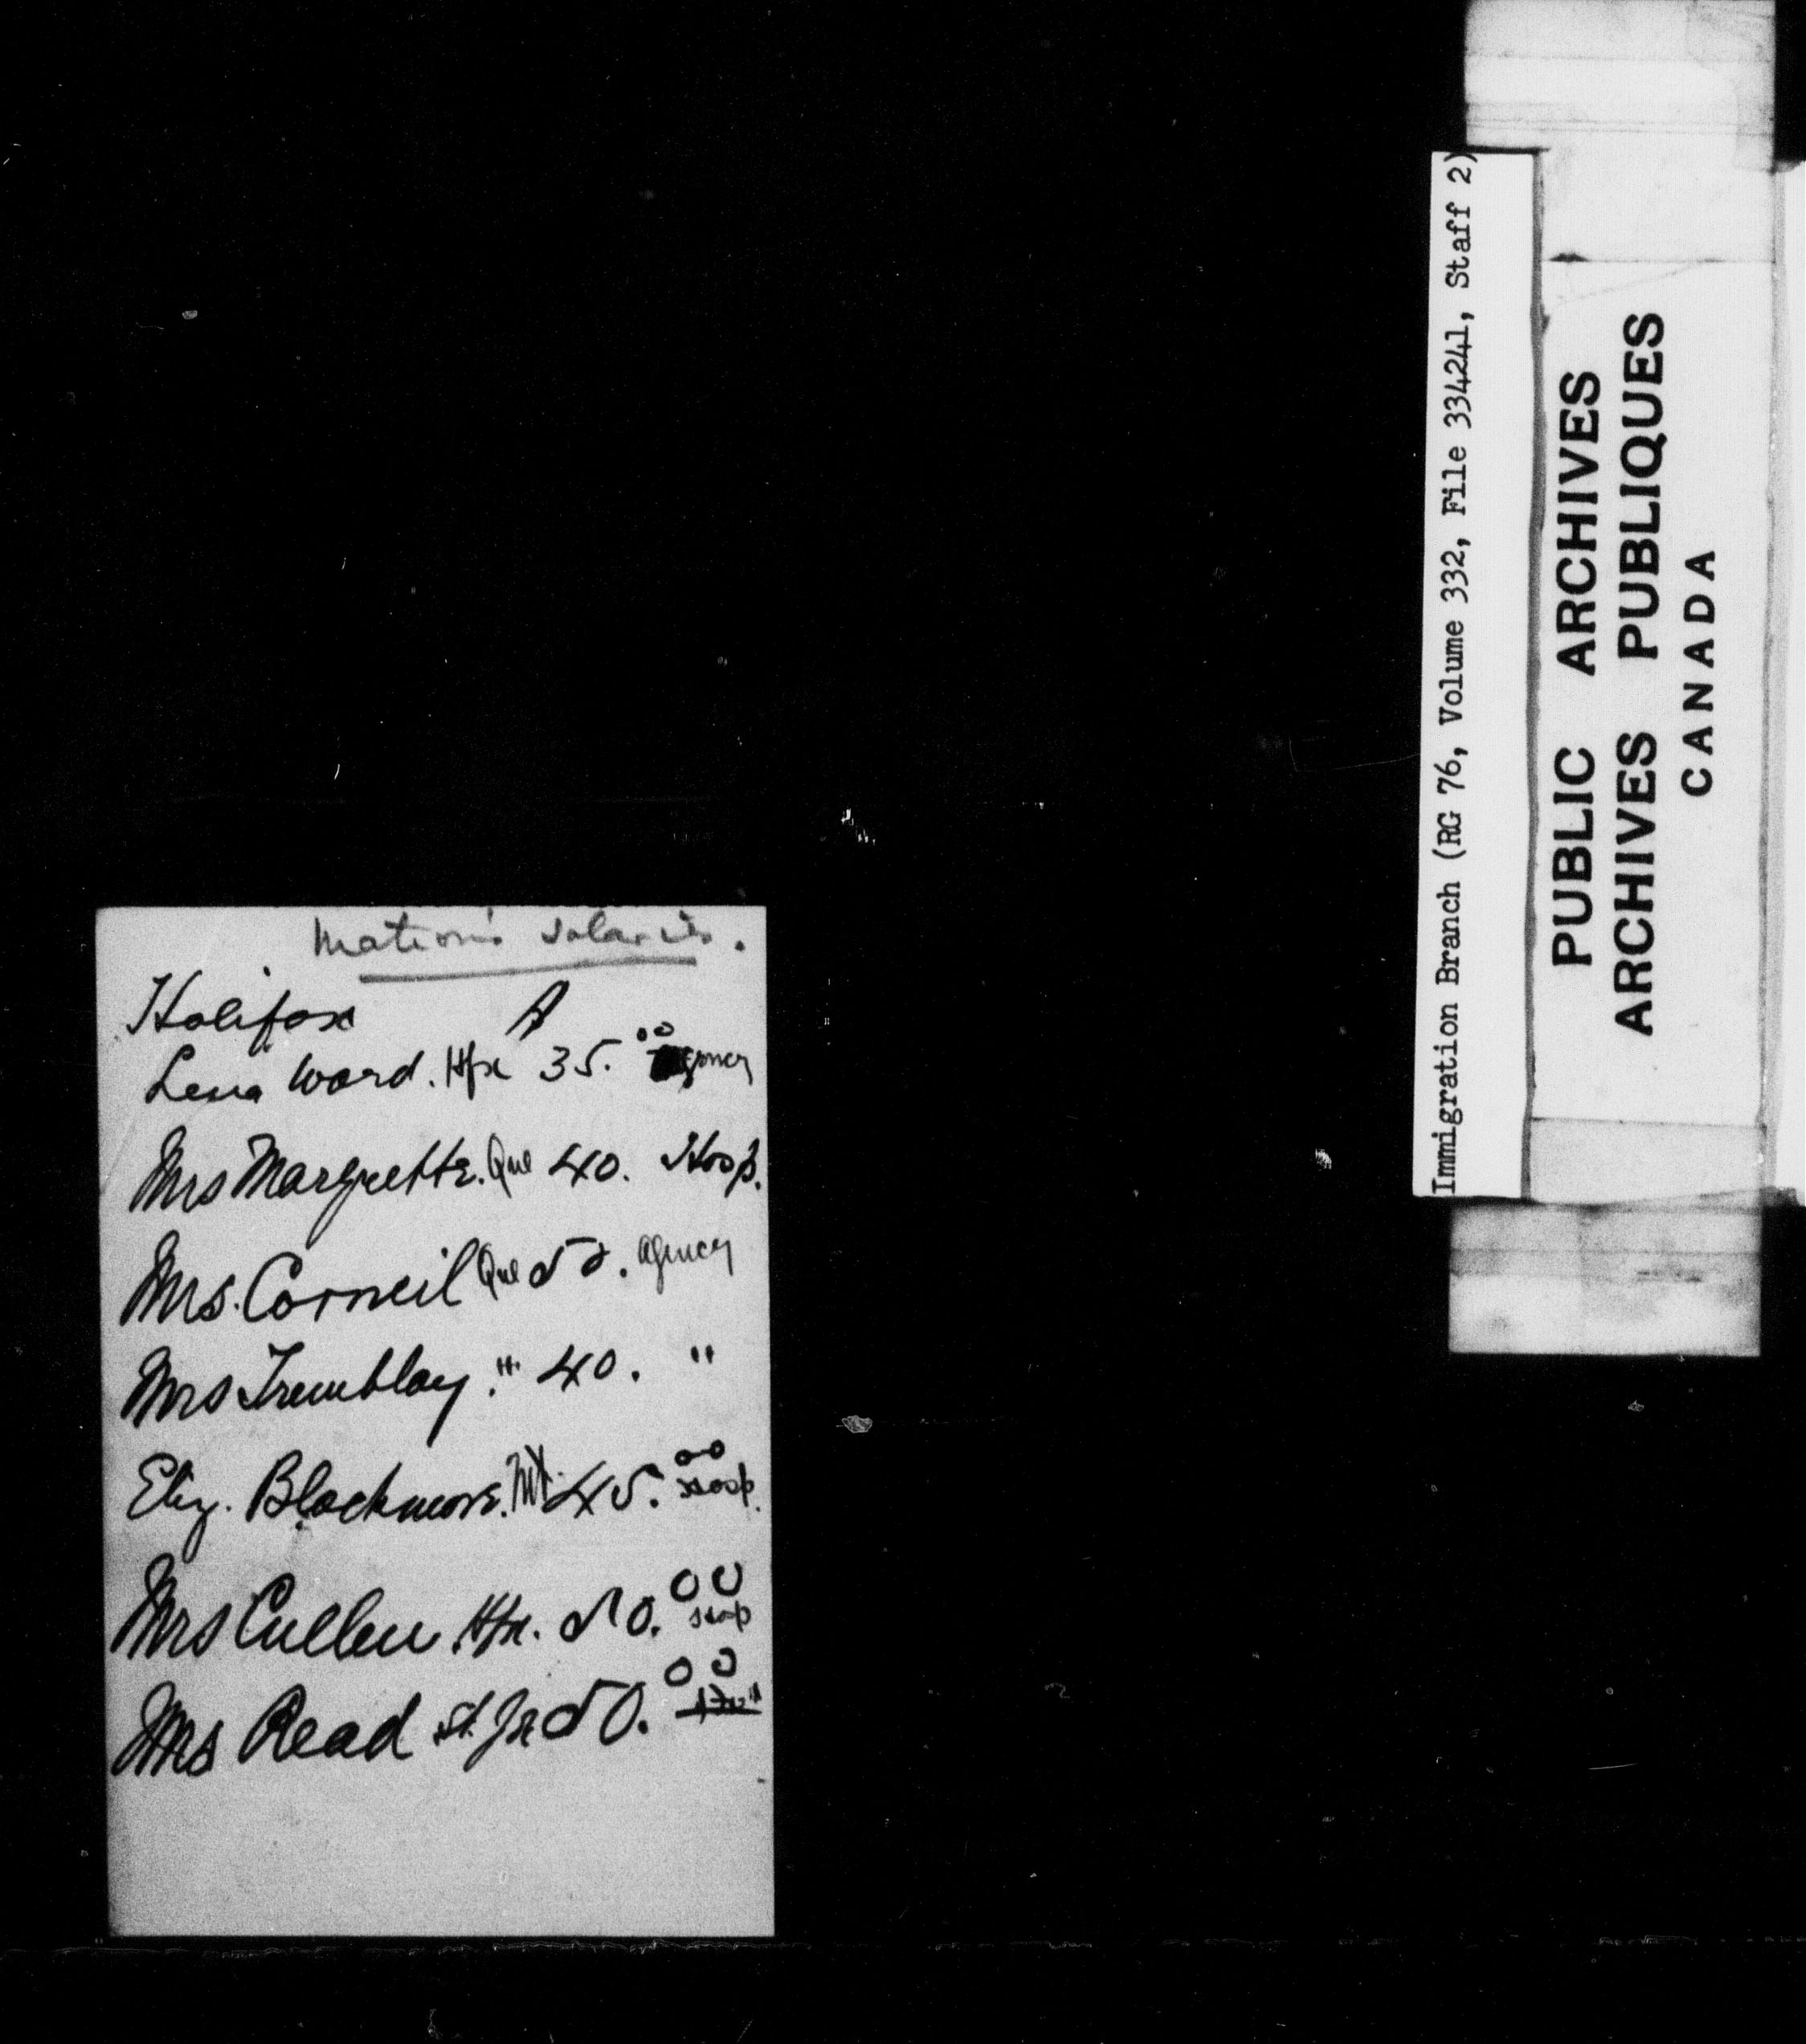 Matron's salaries.
Halifax A
Lena Ward. Hfx 35.00 Agency
Mrs Marquette. Que 40. Hosp.
Mrs. Corneil Que 50. Agency
Mrs Tremblay. " 40. "
Eliz. Blackmore. Mt. 45.00 Hosp.
Mrs Cullen Hfx. 50.00 Hosp
Mrs Read St. Jn 50.00
Immigration Branch (RG 76, Volume 332, File 334241, Staff 2)
PUBLIC ARCHIVES
ARCHIVES PUBLIQUES
CANADA